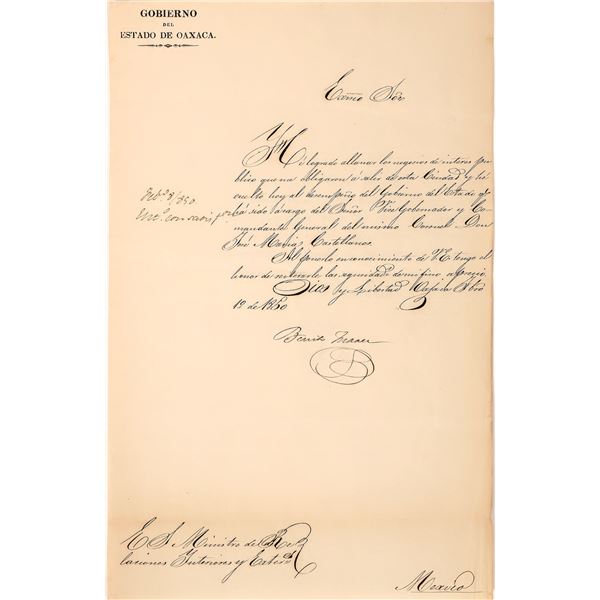 GOBIERNO
DEL
ESTADO DE OAXACA.
Exmo Sor
He logrado allanar los negocios de interes pu-
blico que me obligaron á salir de esta Ciudad y hé
vuelto hoy al desempeño del Gobierno del Estado q.e
há sido á cargo del Señor Vice Gobernador y Co-
mandante General del mismo Coronel Don
José Maria Castellanos.
Al ponerlo en conocimiento de V.E. tengo el
honor de reiterarle las seguridades de mi fino aprecio
Dios y Libertad Oajaca Fbro
1o de 1850
Feb.o 8/850.
Benito Juarez
E. S. Ministro de Re-
laciones Interiores y Exterior
Mexico